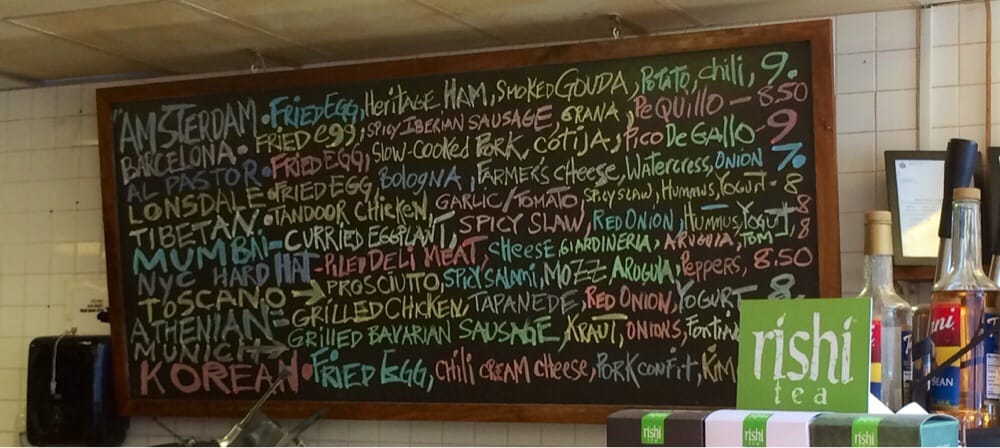 "AMSTERDAM • FRIED EGG, HERITAGE HAM, SMOKED GOUDA, POTATO, CHILI, 9.
BARCELONA • FRIED EGG, SPICY IBERIAN SAUSAGE, GRANA, PEQUILLO — 8.50
AL PASTOR • FRIED EGG, SLOW-COOKED PORK, COTIJA, PICO DE GALLO — 9
LONSDALE • FRIED EGG, BOLOGNA, FARMER'S CHEESE, WATERCRESS, ONION 7.
TIBETAN • TANDOOR CHICKEN, GARLIC/TOMATO, SPICY SLAW, HUMMUS, YOGURT - 8
MUMBAI - CURRIED EGGPLANT, SPICY SLAW, RED ONION, HUMMUS, YOGURT - 8
NYC HARD HAT - PILED DELI MEAT, CHEESE, GIARDINERIA, ARUGULA, TOM - 8
TOSCANO → PROSCIUTO, SPICY SALAMI, MOZZ, ARUGULA, PEPPERS, 8.50
ATHENIAN - GRILLED CHICKEN, TAPANEDE, RED ONION, YOGURT 8
MUNICH - GRILLED BAVARIAN SAUSAGE, KRAUT, ONIONS,
KOREAN • FRIED EGG, CHILI CREAM CHEESE, PORK CONFIT,
rishi
tea
rishi
rishi
rishi